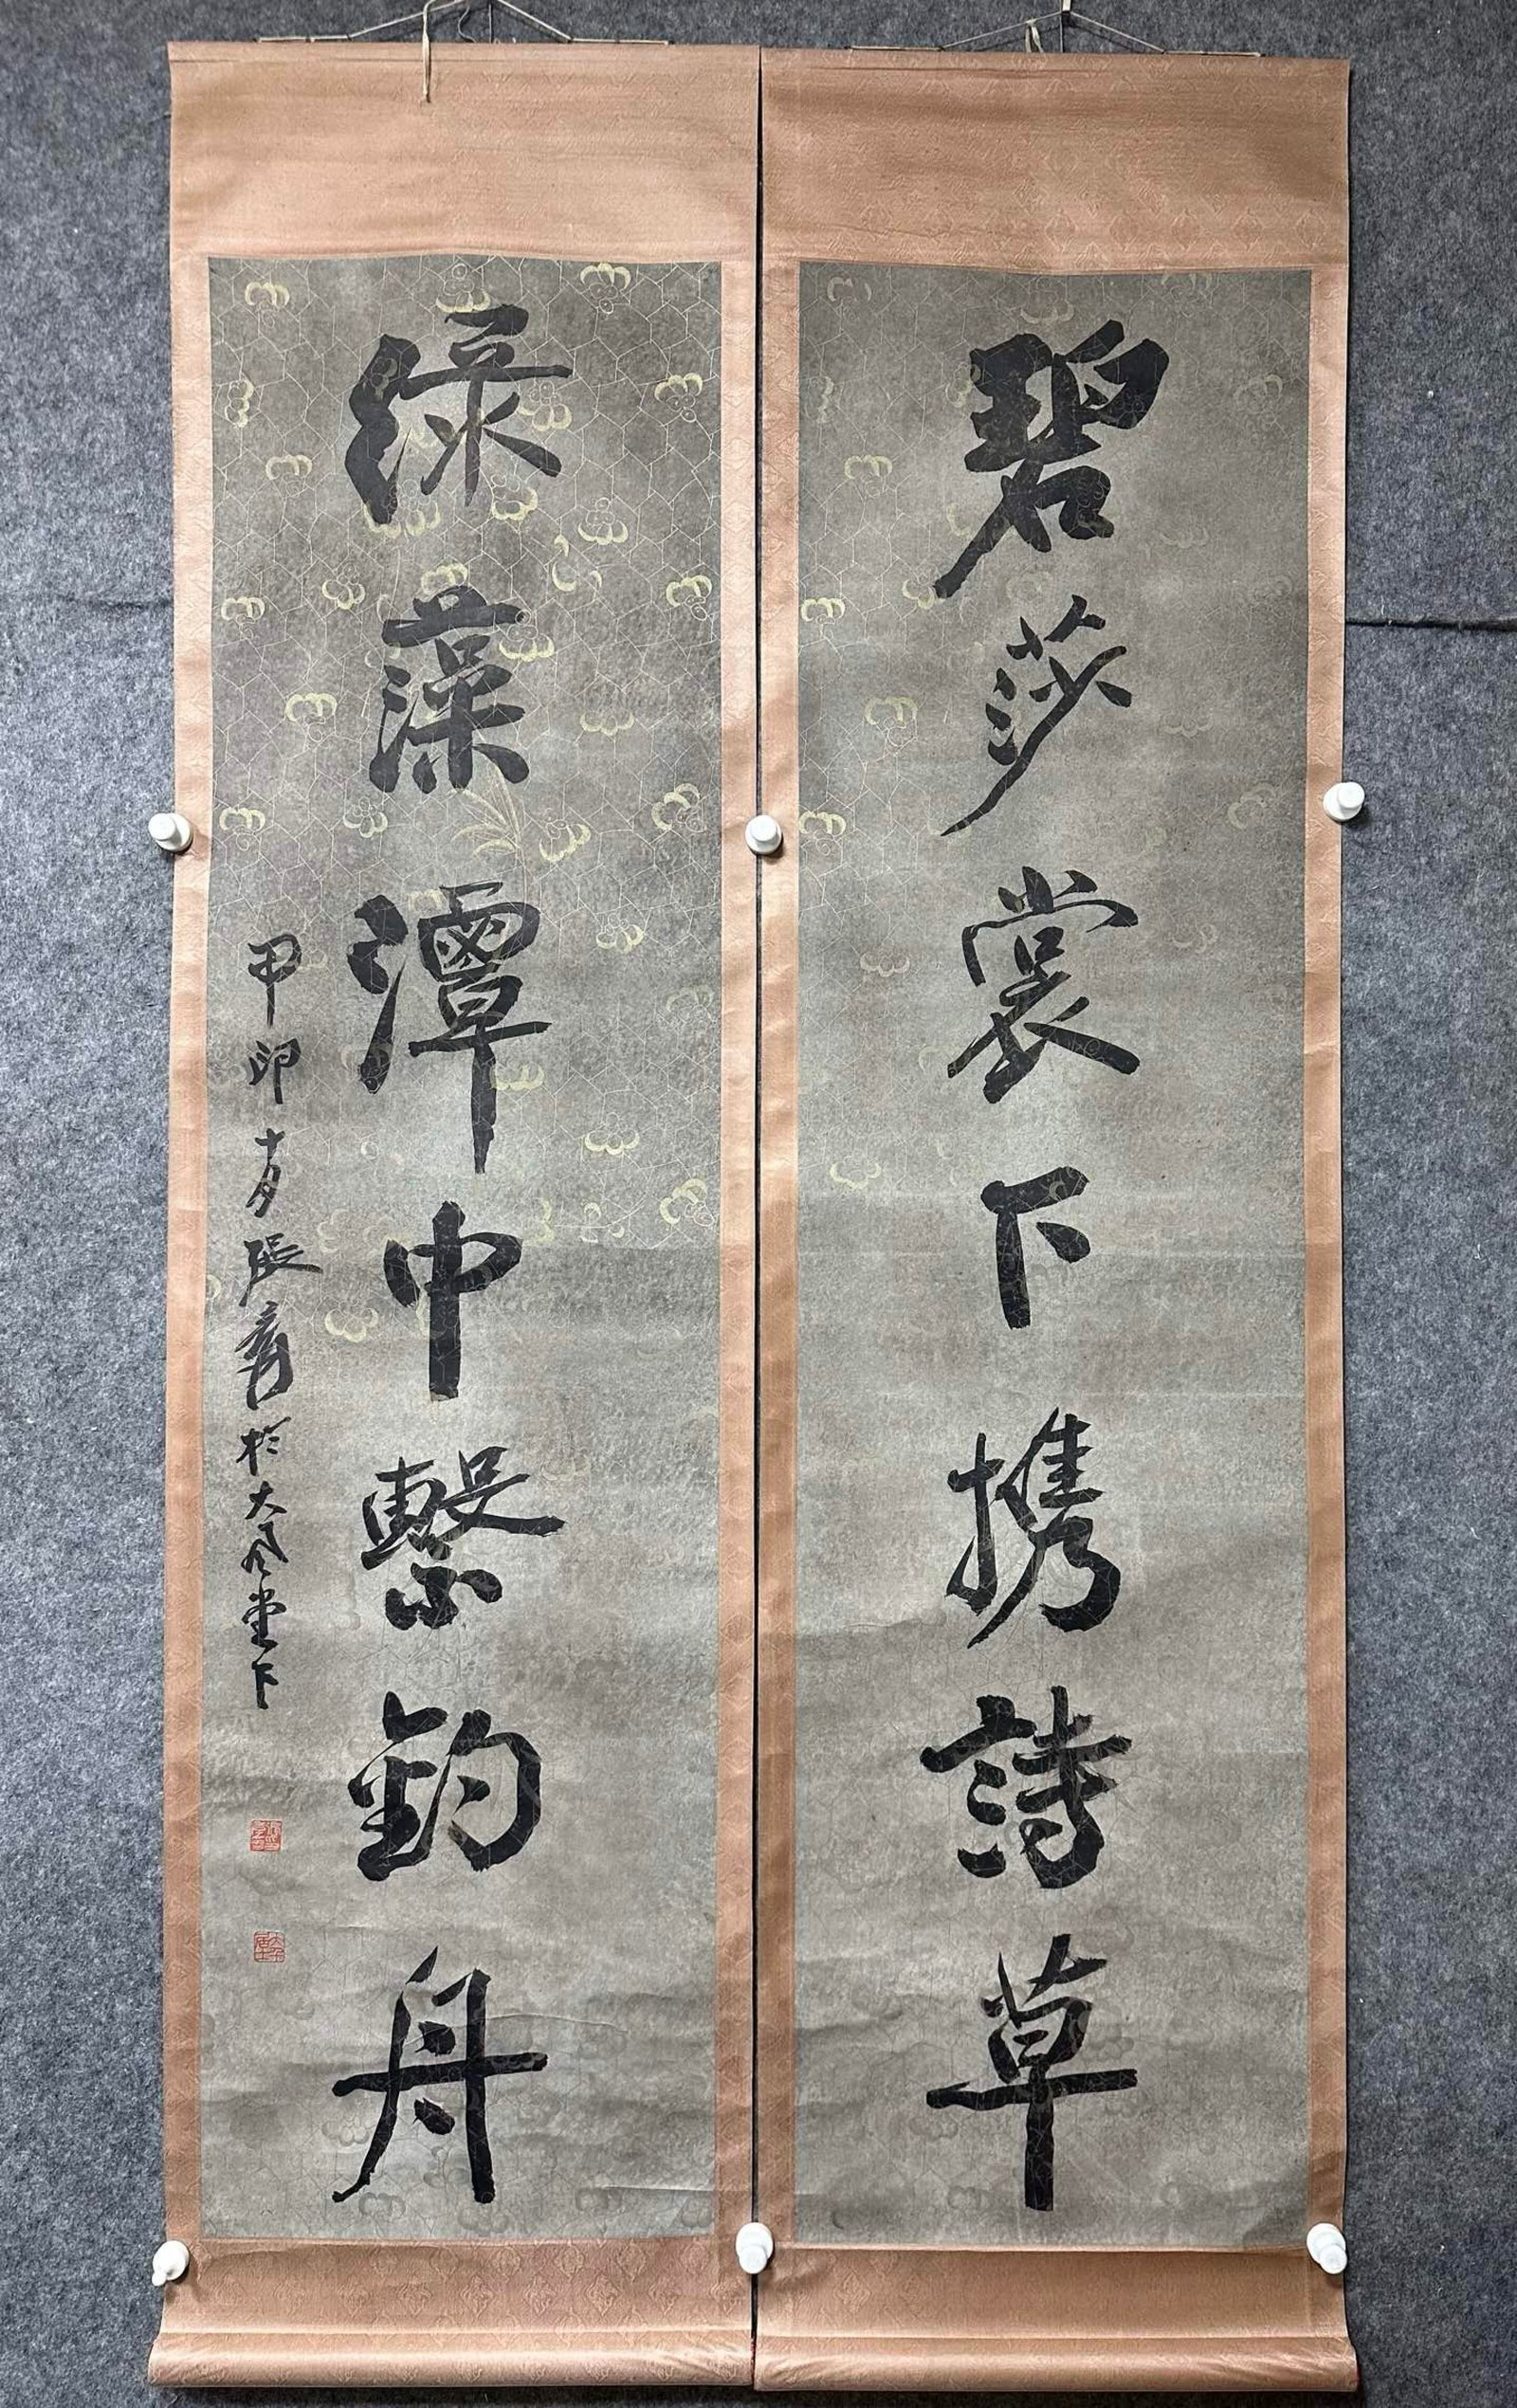 碧莎裳下携詩草
綠藻潭中繫釣舟
甲卯十月張爰於大風堂下